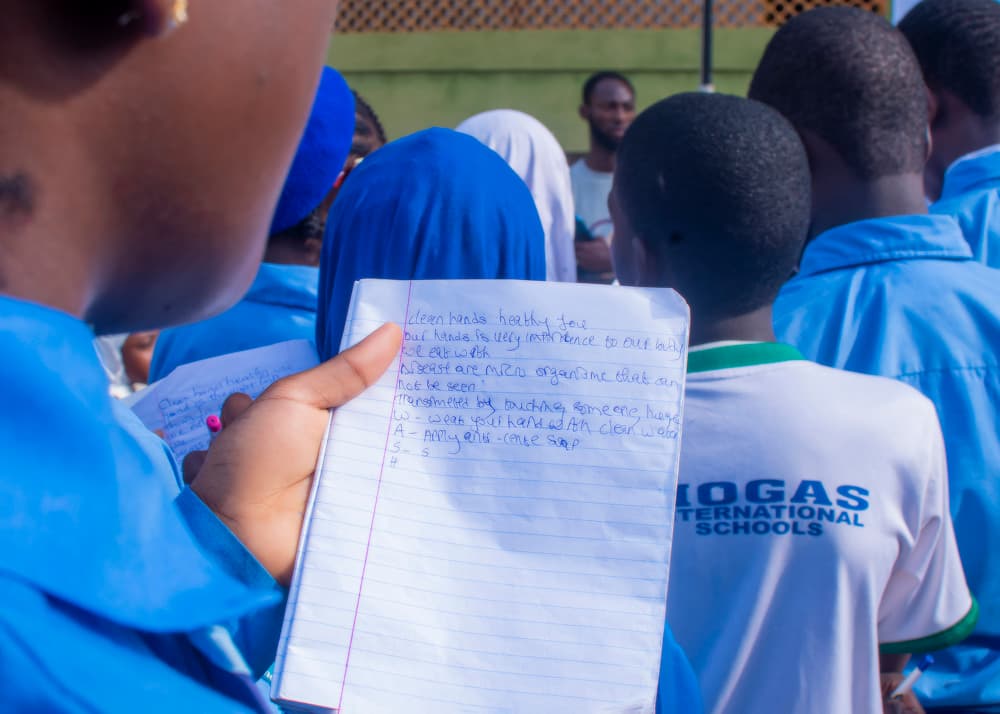 clean hands healthy you
our hands is very importance to our body
we eat with
Diseast are micro organisme that can
not be seen
transmeted by touching someone, huge
W - weat your hand with clean water
A - Apply anti-cente soap
S - S
H
HOGAS
TERNATIONAL
SCHOOLS